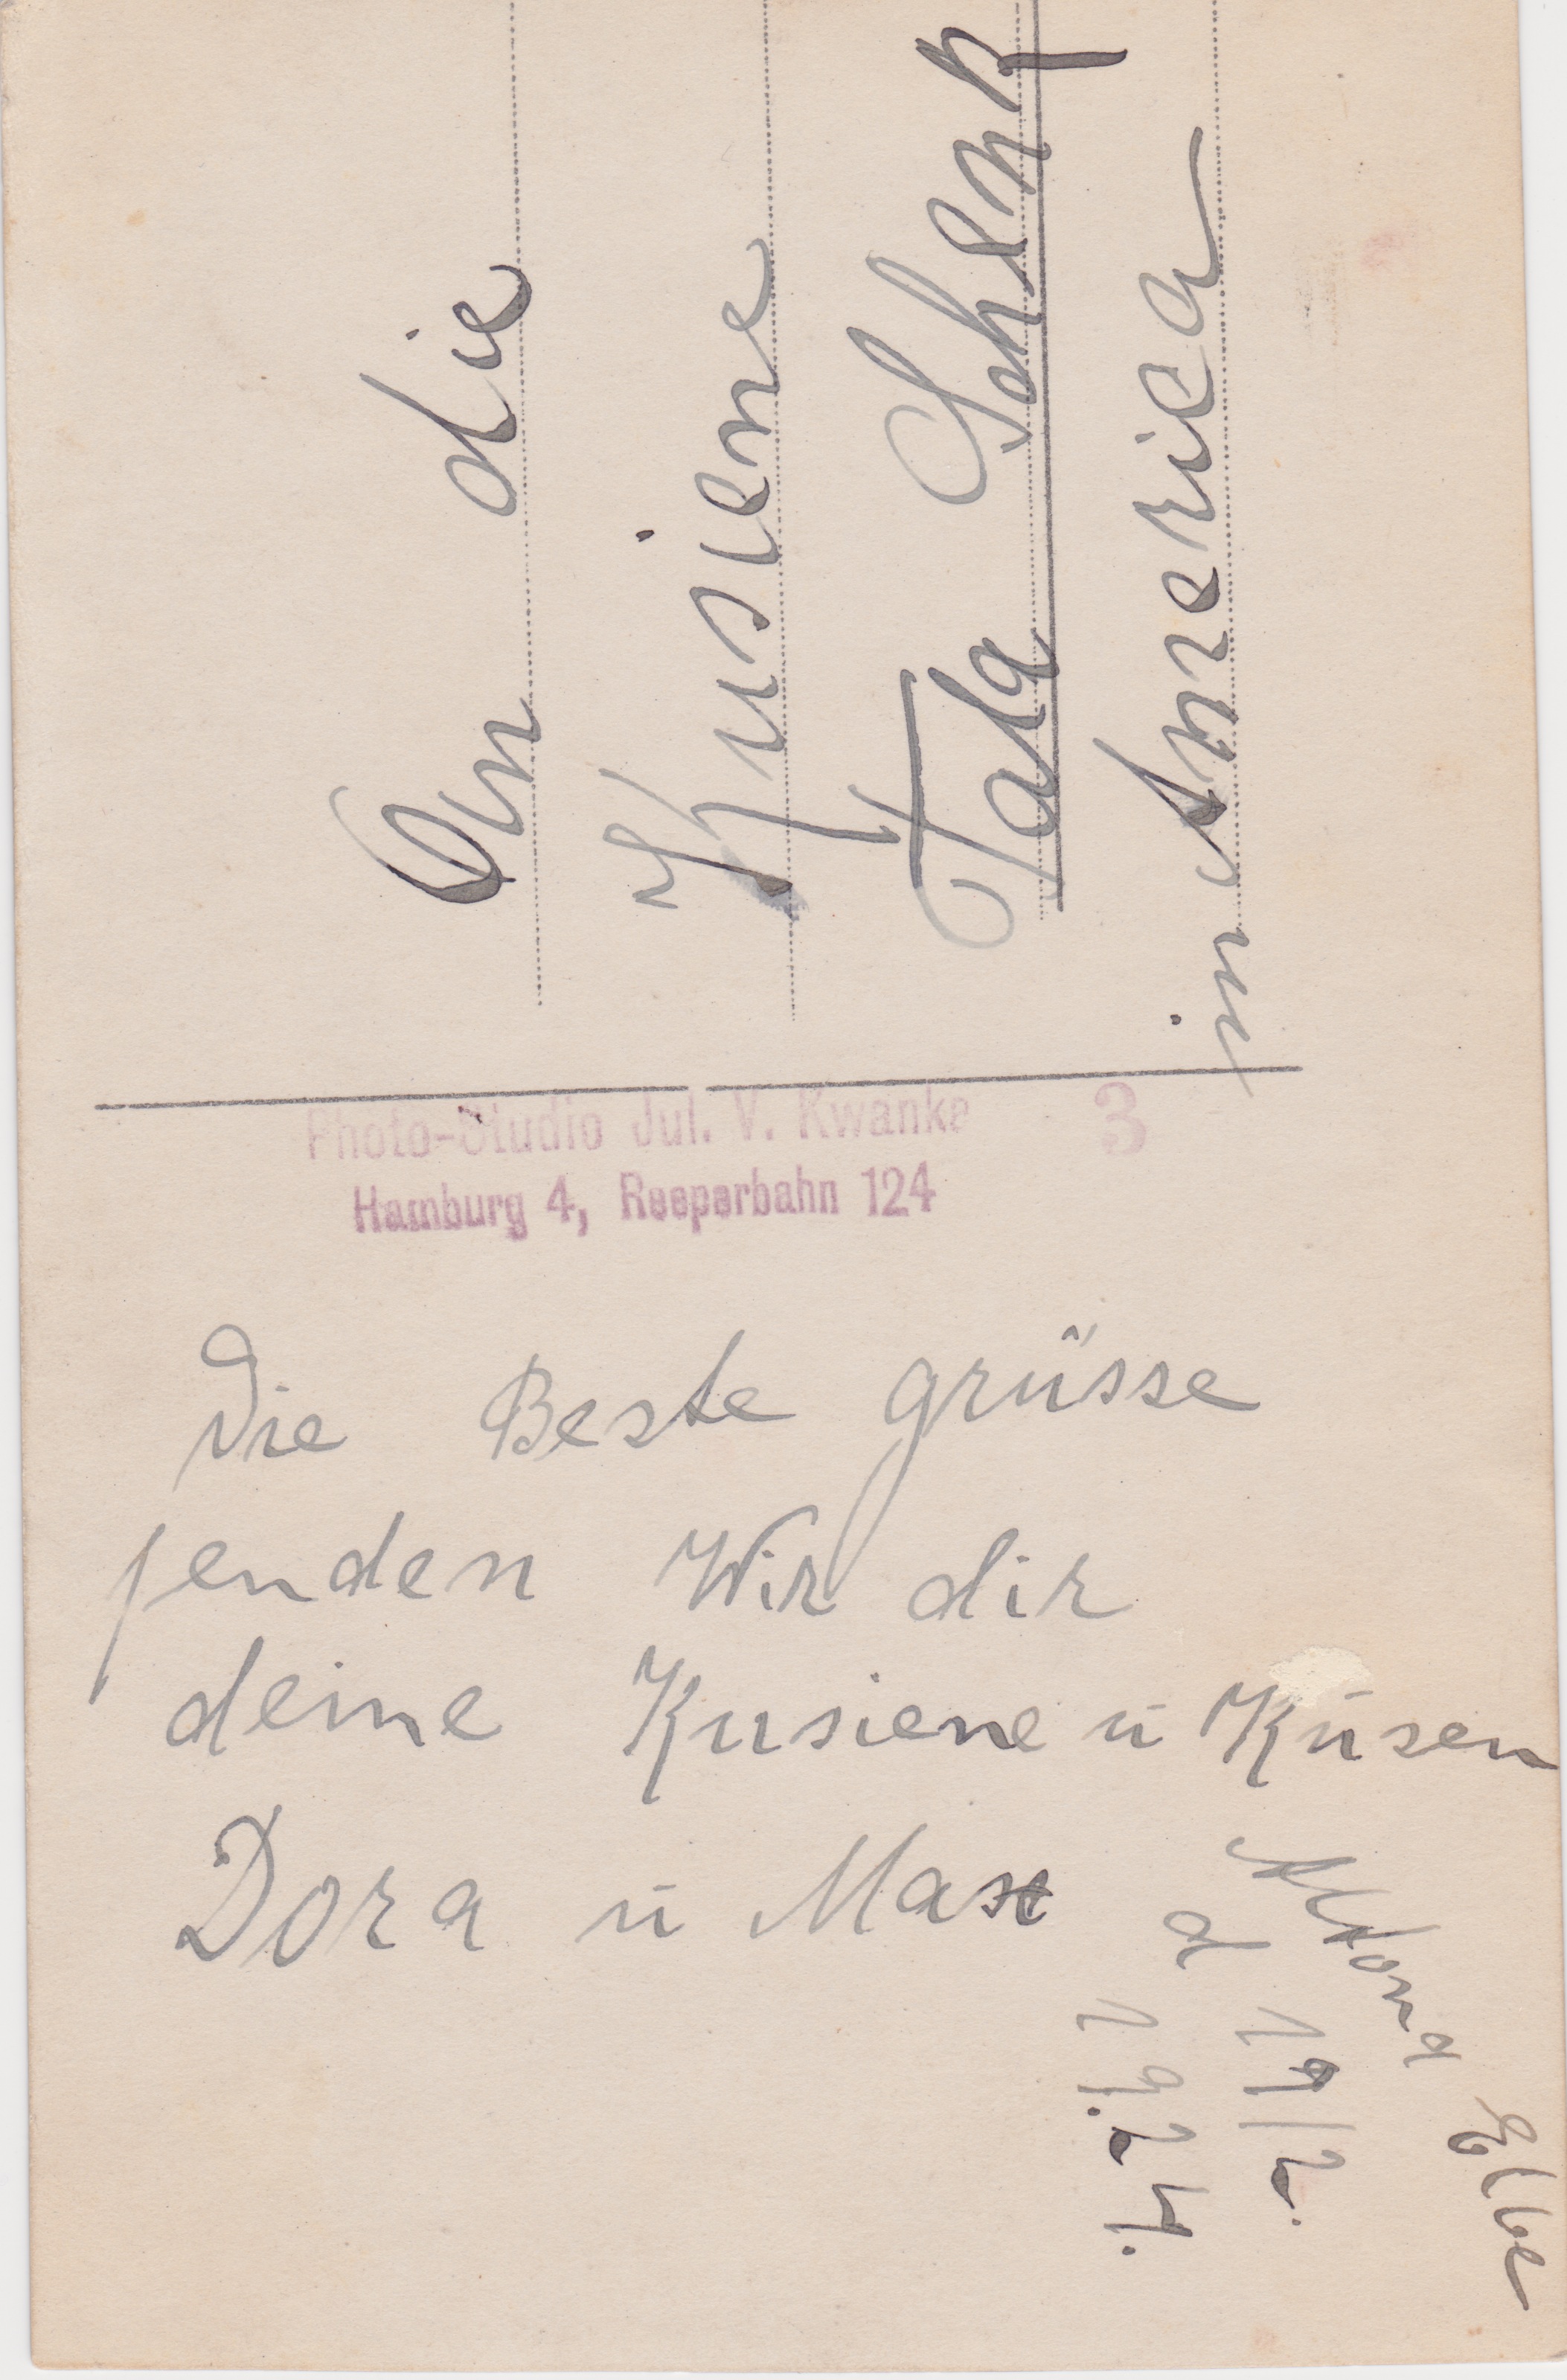 An die
Kusiene
Tala Schenk
in America
Photo-Studio Jul. V. Kwanka
3
Hamburg 4, Reeperbahn 124
Die Beste grüsse
senden Wir dir
deine Kusiene ü Küsen
Dora ü Max
Altona Elbe
d 19/2.
19.24.